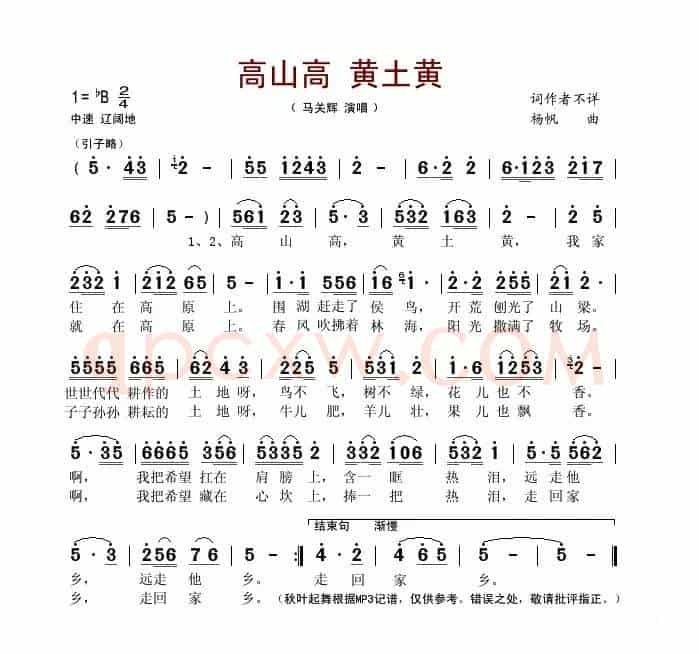 高山高 黄土黄
1=♭B 2/4
（ 马关辉 演唱 ）
词作者不详
中速 辽阔地
杨帆 曲
（引子略）
( 5· 43 | 2 - | 55 1243 | 2 - | 6·2 2 | 6·123 217 |
62 276 | 5 - ) | 561 23 | 5· 3 | 532 163 | 2 5 |
1、2、高 山 高， 黄 土 黄， 我 家
232 1 | 212 65 | 5 - | 1·1 556 | 1 106 | 2·2 255 | 21 2· |
住 在 高 原 上。 围 湖 赶走了 侯 鸟， 开 荒 刨光了 山 梁。
就 在 高 原 上。 春 风 吹拂着 林 海， 阳 光 撒满了 牧 场。
5555 665 | 62 43 | 225 5 | 531 2 | 1·6 1253 | 2 - |
世世代代 耕作的 土 地 呀， 鸟不 飞， 树不 绿， 花 儿 也 不 香。
子子孙孙 耕耘的 土 地 呀， 牛儿 肥， 羊儿 壮， 果 儿 也 飘 香。
5·35 | 6665 356 | 5653 2 | 332 106 | 5653 2 | 5·5 56 |
啊， 我把希望 扛在 肩 膀 上， 含一 眶 热 泪， 远 走他
啊， 我把希望 藏在 心 坎 上， 捧一 把 热 泪， 走 回家
结束句 渐慢
5· 3 | 256 76 | 5 - :‖ 4· 2 | 4 65 | 5 - | 5 - ‖
乡， 远走 他 乡。 走 回 家 乡。
乡， 走回 家 乡。 (秋叶起舞根据MP3记谱，仅供参考。错误之处，敬请批评指正。)
qpcxw.COM